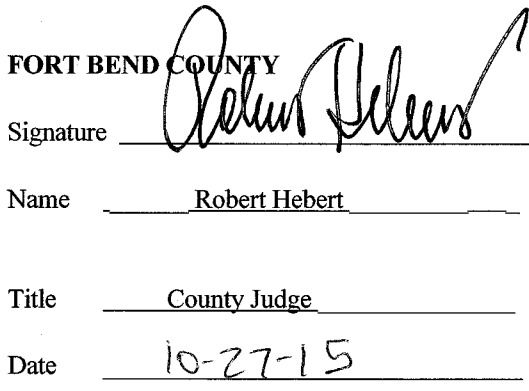 FORT BEND COUNTY
Signature Robert Hebert
Name Robert Hebert
Title County Judge
Date 10-27-15